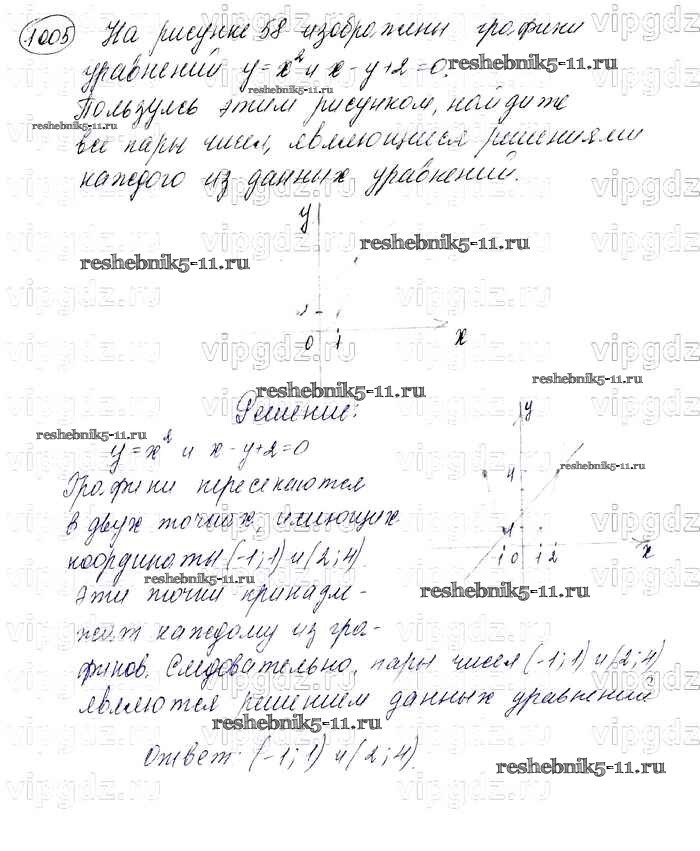 1005 На рисунке 58 изображены графики
уравнений y = x² и x - y + 2 = 0.
reshebnik5-11.ru
reshebnik5-11.ru
Пользуясь этим рисунком, найдите
reshebnik5-11.ru
все пары чисел, являющиеся решениями
каждого из данных уравнений.
vipgdz.ru
y
reshebnik5-11.ru
reshebnik5-11.ru
0 1 x
reshebnik5-11.ru
reshebnik5-11.ru
Решение:
y
reshebnik5-11.ru
y = x² и x - y + 2 = 0
4
reshebnik5-11.ru
Графики пересекаются
в двух точках, имеющих
1
координаты (-1; 1) и (2; 4).
-1 0 1 2 x
reshebnik5-11.ru
reshebnik5-11.ru
Эти точки принадле-
жат каждому из гра-
фиков. Следовательно, пары чисел (-1; 1) и (2; 4)
являются решением данных уравнений
reshebnik5-11.ru
Ответ: (-1; 1) и (2; 4).
reshebnik5-11.ru